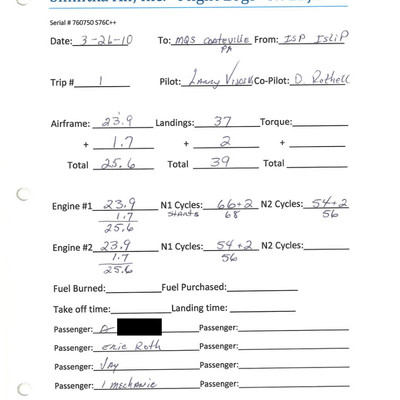 Serial # 760750 S76C++
Date: 3-26-10 To: MQS Coateville PA From: ISP IsliP
Trip # 1 Pilot: Larry Co-Pilot: D. Rothell
Airframe: 23.9 Landings: 37 Torque:
+ 1.7 + 2 +
Total 25.6 Total 39 Total
Engine #1 23.9 N1 Cycles: 66+2 N2 Cycles: 54+2
1.7 starts 68 56
25.6
Engine #2 23.9 N1 Cycles: 54+2 N2 Cycles:
1.7 56
25.6
Fuel Burned: Fuel Purchased:
Take off time: Landing time:
Passenger: Passenger:
Passenger: Eric Roth Passenger:
Passenger: Jay Passenger:
Passenger: 1 mechanic Passenger: